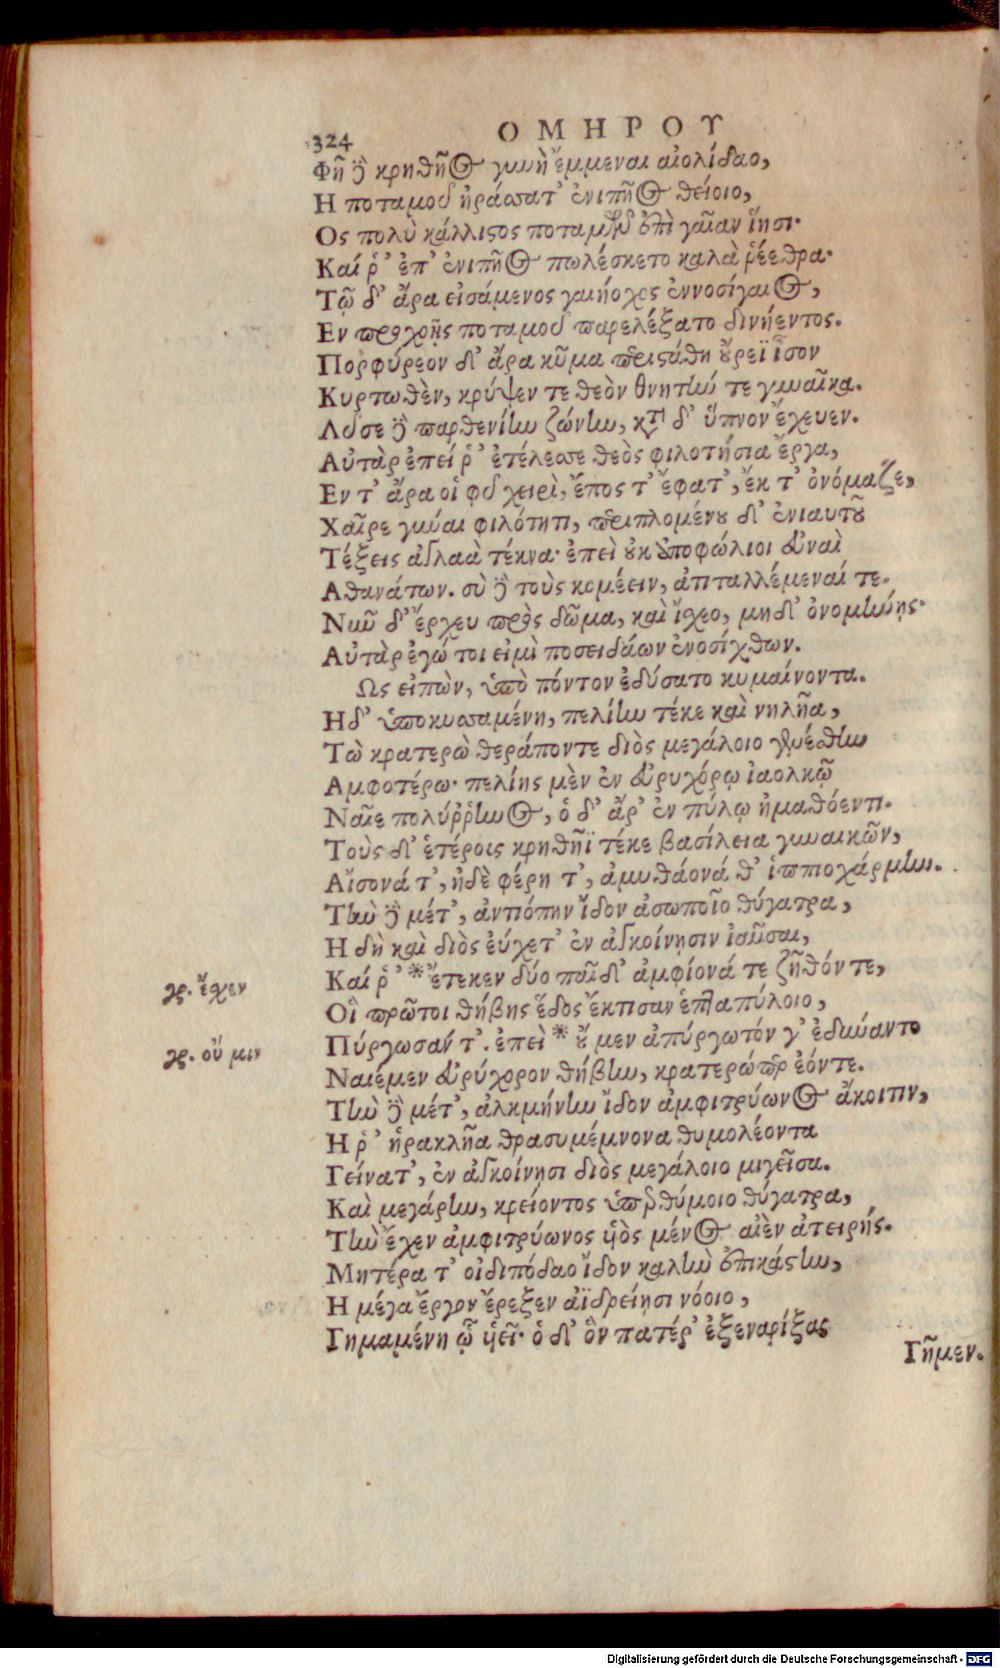 324
ΟΜΗΡΟΥ
Φῆ δὲ κρηθῆος γυνὴ ἔμμεναι αἰολίδαο,
Η ποταμοῦ ἠράσσατ' ἐνιπῆος θείοιο,
Ος πολὺ κάλλιστος ποταμῶν ἐπὶ γαῖαν ἵησι·
Καί ῥ' ἐπ' ἐνιπῆος πωλέσκετο καλὰ ῥέεθρα·
Τῷ δ' ἄρα εἰσάμενος γαιήοχος ἐννοσίγαιος,
Εν προχοῇς ποταμοῦ παρελέξατο δινήεντος.
Πορφύρεον δ' ἄρα κῦμα περιστάθη οὔρεϊ ἶσον
Κυρτωθὲν, κρύψεν τε θεὸν θνητήν τε γυναῖκα.
Λῦσε δὲ παρθενίην ζώνην, κατὰ δ' ὕπνον ἔχευεν.
Αὐτὰρ ἐπεί ῥ' ἐτέλεσσε θεὸς φιλοτήσια ἔργα,
Εν τ' ἄρα οἱ φῦ χειρὶ, ἔπος τ' ἔφατ', ἔκ τ' ὀνόμαζε,
Χαῖρε γύναι φιλότητι, περιπλομένου δ' ἐνιαυτοῦ
Τέξεις ἀγλαὰ τέκνα· ἐπεὶ οὐκ ἀποφώλιοι εὐναὶ
Αθανάτων. σὺ δὲ τοὺς κομέειν, ἀτιταλλέμεναί τε.
Νῦν δ' ἔρχευ πρὸς δῶμα, καὶ ἴσχεο, μηδ' ὀνομήνῃς·
Αὐτὰρ ἐγώ τοι εἰμὶ ποσειδάων ἐνοσίχθων.
Ως εἰπὼν, ὑπὸ πόντον ἐδύσατο κυμαίνοντα.
Ηδ' ὑποκυσσαμένη, πελίην τέκε καὶ νηλῆα,
Τὼ κρατερὼ θεράποντε διὸς μεγάλοιο γενέσθην
Αμφοτέρω· πελίης μὲν ἐν εὐρυχόρῳ ἰαολκῷ
Ναῖε πολύῤῥηνος, ὁ δ' ἄρ' ἐν πύλῳ ἠμαθόεντι.
Τοὺς δ' ἑτέροις κρηθῆϊ τέκε βασίλεια γυναικῶν,
Αἴσονά τ', ἠδὲ φέρη τ', ἀμυθάονά θ' ἱππιοχάρμην.
Τὴν δὲ μέτ', ἀντιόπην ἴδον ἀσωποῖο θύγατρα,
Η δὴ καὶ διὸς εὔχετ' ἐν ἀγκοίνησιν ἰαῦσαι,
Καί ῥ' *ἔτεκεν δύο παῖδ' ἀμφίονά τε ζῆθόν τε,
γρ. ἔσχεν
Οἳ πρῶτοι θήβης ἕδος ἔκτισαν ἑπταπύλοιο,
Πύργωσαν τ'. ἐπεὶ * οὔ μεν ἀπύργωτόν γ' ἐδύναντο
γρ. οὔ μιν
Ναιέμεν εὐρύχορον θήβην, κρατερώ περ ἐόντε.
Τὴν δὲ μέτ', ἀλκμήνην ἴδον ἀμφιτρύωνος ἄκοιτιν,
Η ῥ' ἡρακλῆα θρασυμέμνονα θυμολέοντα
Γείνατ', ἐν ἀγκοίνησι διὸς μεγάλοιο μιγεῖσα.
Καὶ μεγάρην, κρείοντος ὑπερθύμοιο θύγατρα,
Τὴν ἔχεν ἀμφιτρύωνος υἱὸς μένος αἰὲν ἀτειρής.
Μητέρα τ' οἰδιπόδαο ἴδον καλὴν ἐπικάστην,
Η μέγα ἔργον ἔρεξεν ἀϊδρείησι νόοιο,
Γημαμένη ᾧ υἱεῖ· ὁ δ' ὃν πατέρ' ἐξεναρίξας
Γῆμεν.
Digitalisierung gefördert durch die Deutsche Forschungsgemeinschaft - DFG